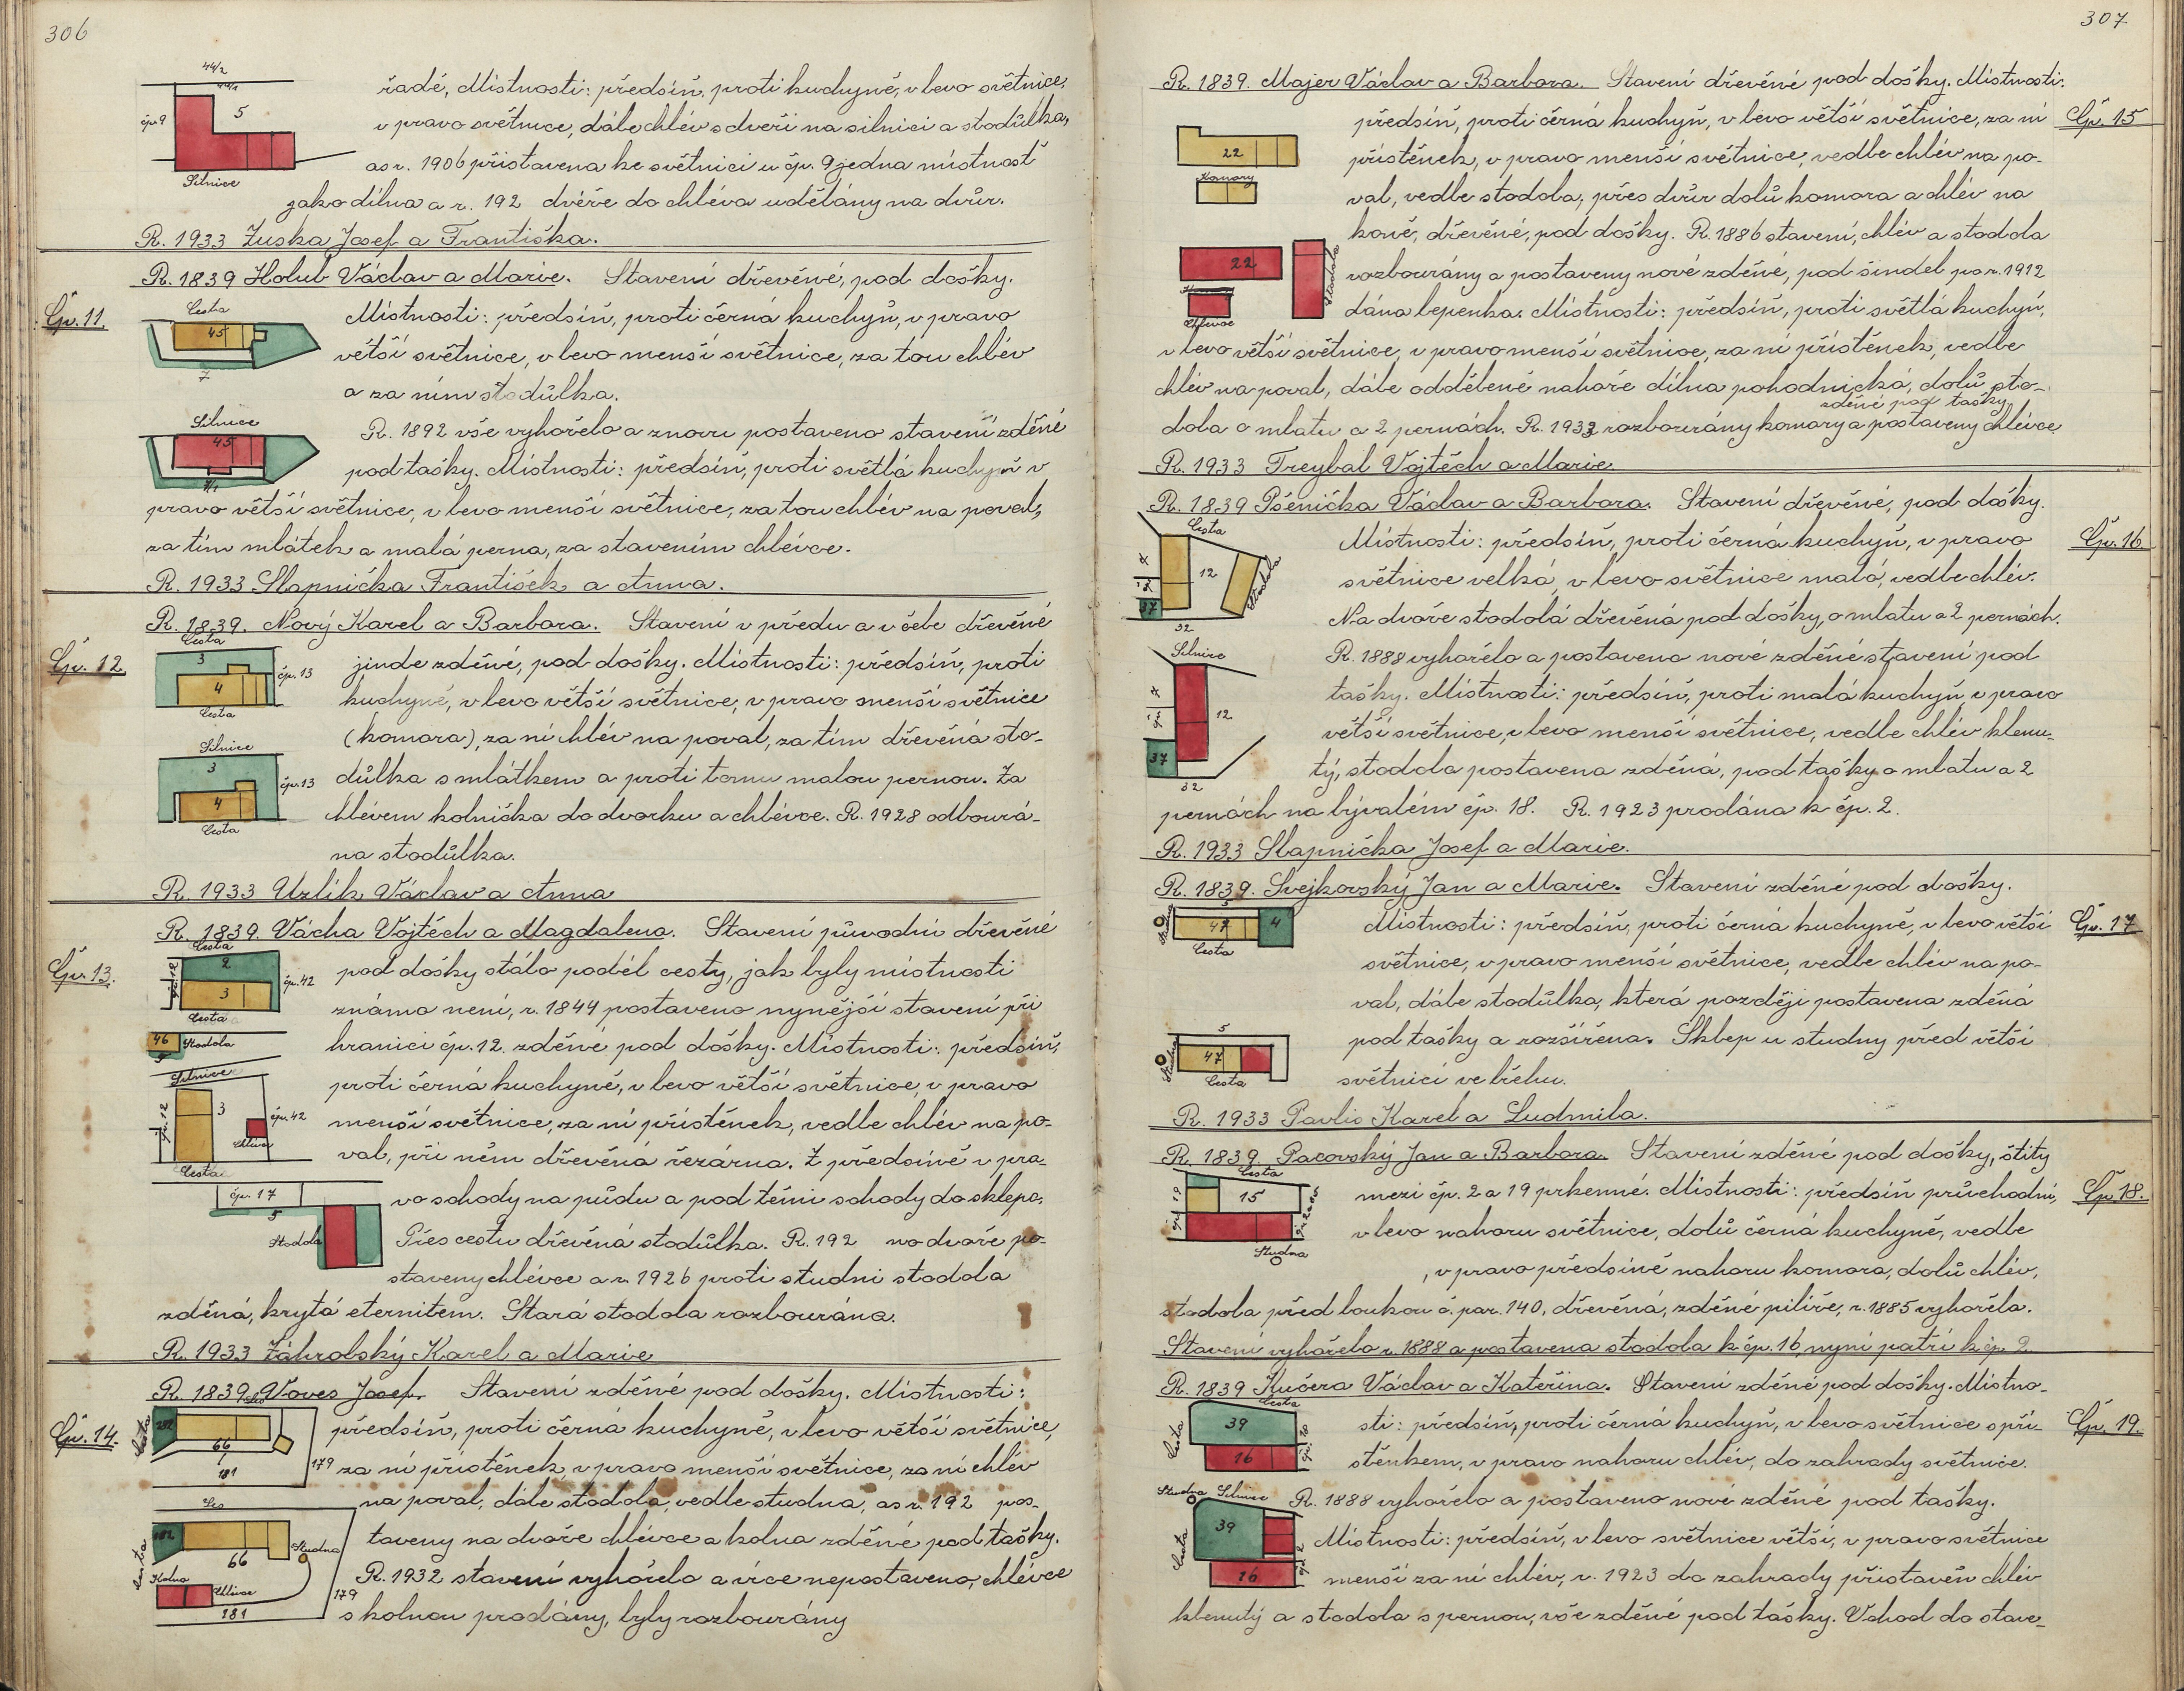 306
44/2
44/1
čp. 9
5
Silnice
řadě, Místnosti: předsíň, proti kuchyně, v levo světnice,
v pravo světnice, dále chlév s dveří na silnici a stodůlka,
as r. 1906 přistavena ke světnici u čp. 9 jedna místnost
jako dílna a r. 192 dvéře do chléva udělány na dvůr.
R. 1933 Zuska Josef a Františka.
R. 1839 Holub Václav a Marie. Stavení dřevěné, pod došky.
Čp. 11.
Cesta
45
7
Místnosti: předsíň, proti černá kuchyň, v pravo
větší světnice, v levo menší světnice, za tou chlév
a za ním stodůlka.
Silnice
45
7/1
R. 1892 vše vyhořelo a znovu postaveno stavení zděné
pod tašky. Místnosti: předsíň, proti světlá kuchyň v
pravo větší světnice, v levo menší světnice, za tou chlév na poval,
za tím mlátek a malá perna, za stavením chlévce.
R. 1933 Slapnička František a Anna.
R. 1839. Nový Karel a Barbora. Stavení v předu a v čele dřevěné
Čp. 12.
Cesta
3
4
čp. 13
Cesta
jinde zděné, pod došky. Místnosti: předsíň, proti
kuchyně, v levo větší světnice, v pravo menší světnice
(komora), za ní chlév na poval, za tím dřevěná sto-
Silnice
3
4
čp. 13
Cesta
důlka s mlátkem a proti tomu malou pernou. Za
chlévem kolnička do dvorku a chlévce. R. 1928 odbourá-
na stodůlka.
R. 1933 Uzlík Václav a Anna
R. 1839. Vácha Vojtěch a Magdalena. Stavení původní dřevěné
Čp. 13.
Cesta
2
3
čp. 12
čp. 42
Cesta
pod došky stálo podél cesty, jak byly místnosti
známo není, r. 1844 postaveno nynější stavení při
46
Stodola
5
hranici čp. 12. zděné pod došky. Místnosti: předsíň,
Silnice
3
čp. 12
čp. 42
Chlívce
Cesta
proti černá kuchyně, v levo větší světnice, v pravo
menší světnice, za ní přístěnek, vedle chlév na po-
val, při něm dřevěná řezárna. Z předsíně v pra-
čp. 17
5
Stodola
vo schody na půdu a pod těmi schody do sklepa.
Přes cestu dřevěná stodůlka. R. 192 na dvoře po-
staveny chlévce a r. 1926 proti studni stodola
zděná, krytá eternitem. Stará stodola rozbourána.
R. 1933 Záhrobský Karel a Marie
R. 1839. Voves Josef. Stavení zděné pod došky. Místnosti:
Čp. 14.
Les
Cesta
182
66
181
179
předsíň, proti černá kuchyně, v levo větší světnice,
za ní přístěnek, v pravo menší světnice, za ní chlév
na poval, dále stodola, vedle studna, as r. 192 pos-
Les
Cesta
182
66
Studna
Kolna
Chlívce
181
179
taveny na dvoře chlévce a kolna zděné pod tašky.
R. 1932 stavení vyhořelo a více nepostaveno, chlévce
s kolnou prodány, byly rozbourány
307
R. 1839. Majer Václav a Barbora. Stavení dřevěné pod došky. Místnosti:
Čp. 15
22
Komory
předsíň, proti černá kuchyň, v levo větší světnice, za ní
přístěnek, v pravo menší světnice, vedle chlév na po-
val, vedle stodola, přes dvůr dolů komora a chlév na
koně, dřevěné, pod došky. R. 1886 stavení, chlév a stodola
22
Stodola
Chlévce
rozbourány a postaveny nové zděné, pod šindel po r. 1912
dána lepenka. Místnosti: předsíň, proti světlá kuchyň,
v levo větší světnice, v pravo menší světnice, za ní přístěnek, vedle
chlév na poval, dále oddělené nahoře dílna pohodnická, dolů sto-
zděné pod tašky
dola o mlatu a 2 pernách. R. 1933 rozbourány komory a postaveny chlévce.
R. 1933 Treybal Vojtěch a Marie.
R. 1839 Pšenička Václav a Barbora. Stavení dřevěné, pod došky.
Čp. 16
Cesta
7
12
Stodola
37
32
Místnosti: předsíň, proti černá kuchyň, v pravo
světnice velká, v levo světnice malá, vedle chlév.
Na dvoře stodola dřevěná pod došky, o mlatu a 2 pernách.
Silnice
7
12
37
32
R. 1888 vyhořelo a postaveno nové zděné stavení pod
tašky. Místnosti: předsíň, proti malá kuchyň, v pravo
větší světnice, v levo menší světnice, vedle chlév klenu-
tý, stodola postavena zděná, pod tašky o mlatu a 2
pernách na bývalém čp. 18. R. 1923 prodána k čp. 2.
R. 1933 Slapnička Josef a Marie.
R. 1839. Svejkovský Jan a Marie. Stavení zděné pod došky.
Čp. 17
5
47
4
Cesta
Místnosti: předsíň, proti černá kuchyně, v levo větší
světnice, v pravo menší světnice, vedle chlév na po-
val, dále stodůlka, která později postavena zděná
5
47
Cesta
pod tašky a rozšířena. Sklep u studny před větší
světnicí ve břehu.
R. 1933 Pavlis Karel a Ludmila.
R. 1839 Pacovský Jan a Barbora. Stavení zděné pod došky, štíty
Čp. 18.
Cesta
15
Studna
mezi čp. 2 a 19 prkenné. Místnosti: předsíň průchodní,
v levo nahoru světnice, dolů černá kuchyně, vedle
, v pravo předsíně nahoru komora, dolů chlév,
stodola před loukou č. par. 140, dřevěná, zděné pilíře, r. 1885 vyhořela.
Stavení vyhořelo r. 1888 a postavena stodola k čp. 16, nyní patří k čp. 2.
R. 1839 Kučera Václav a Kateřina. Stavení zděné pod došky. Místno-
Čp. 19.
Cesta
Cesta
39
16
sti: předsíň, proti černá kuchyň, v levo světnice s pří-
stěnkem, v pravo nahoru chlév, do zahrady světnice.
Studna
Silnice
Cesta
39
16
R. 1888 vyhořelo a postaveno nové zděné pod tašky.
Místnosti: předsíň, v levo světnice větší, v pravo světnice
menší za ní chlév, r. 1923 do zahrady přistavěn chlév
klenutý a stodola s pernou, vše zděné pod tašky. Vchod do stave-